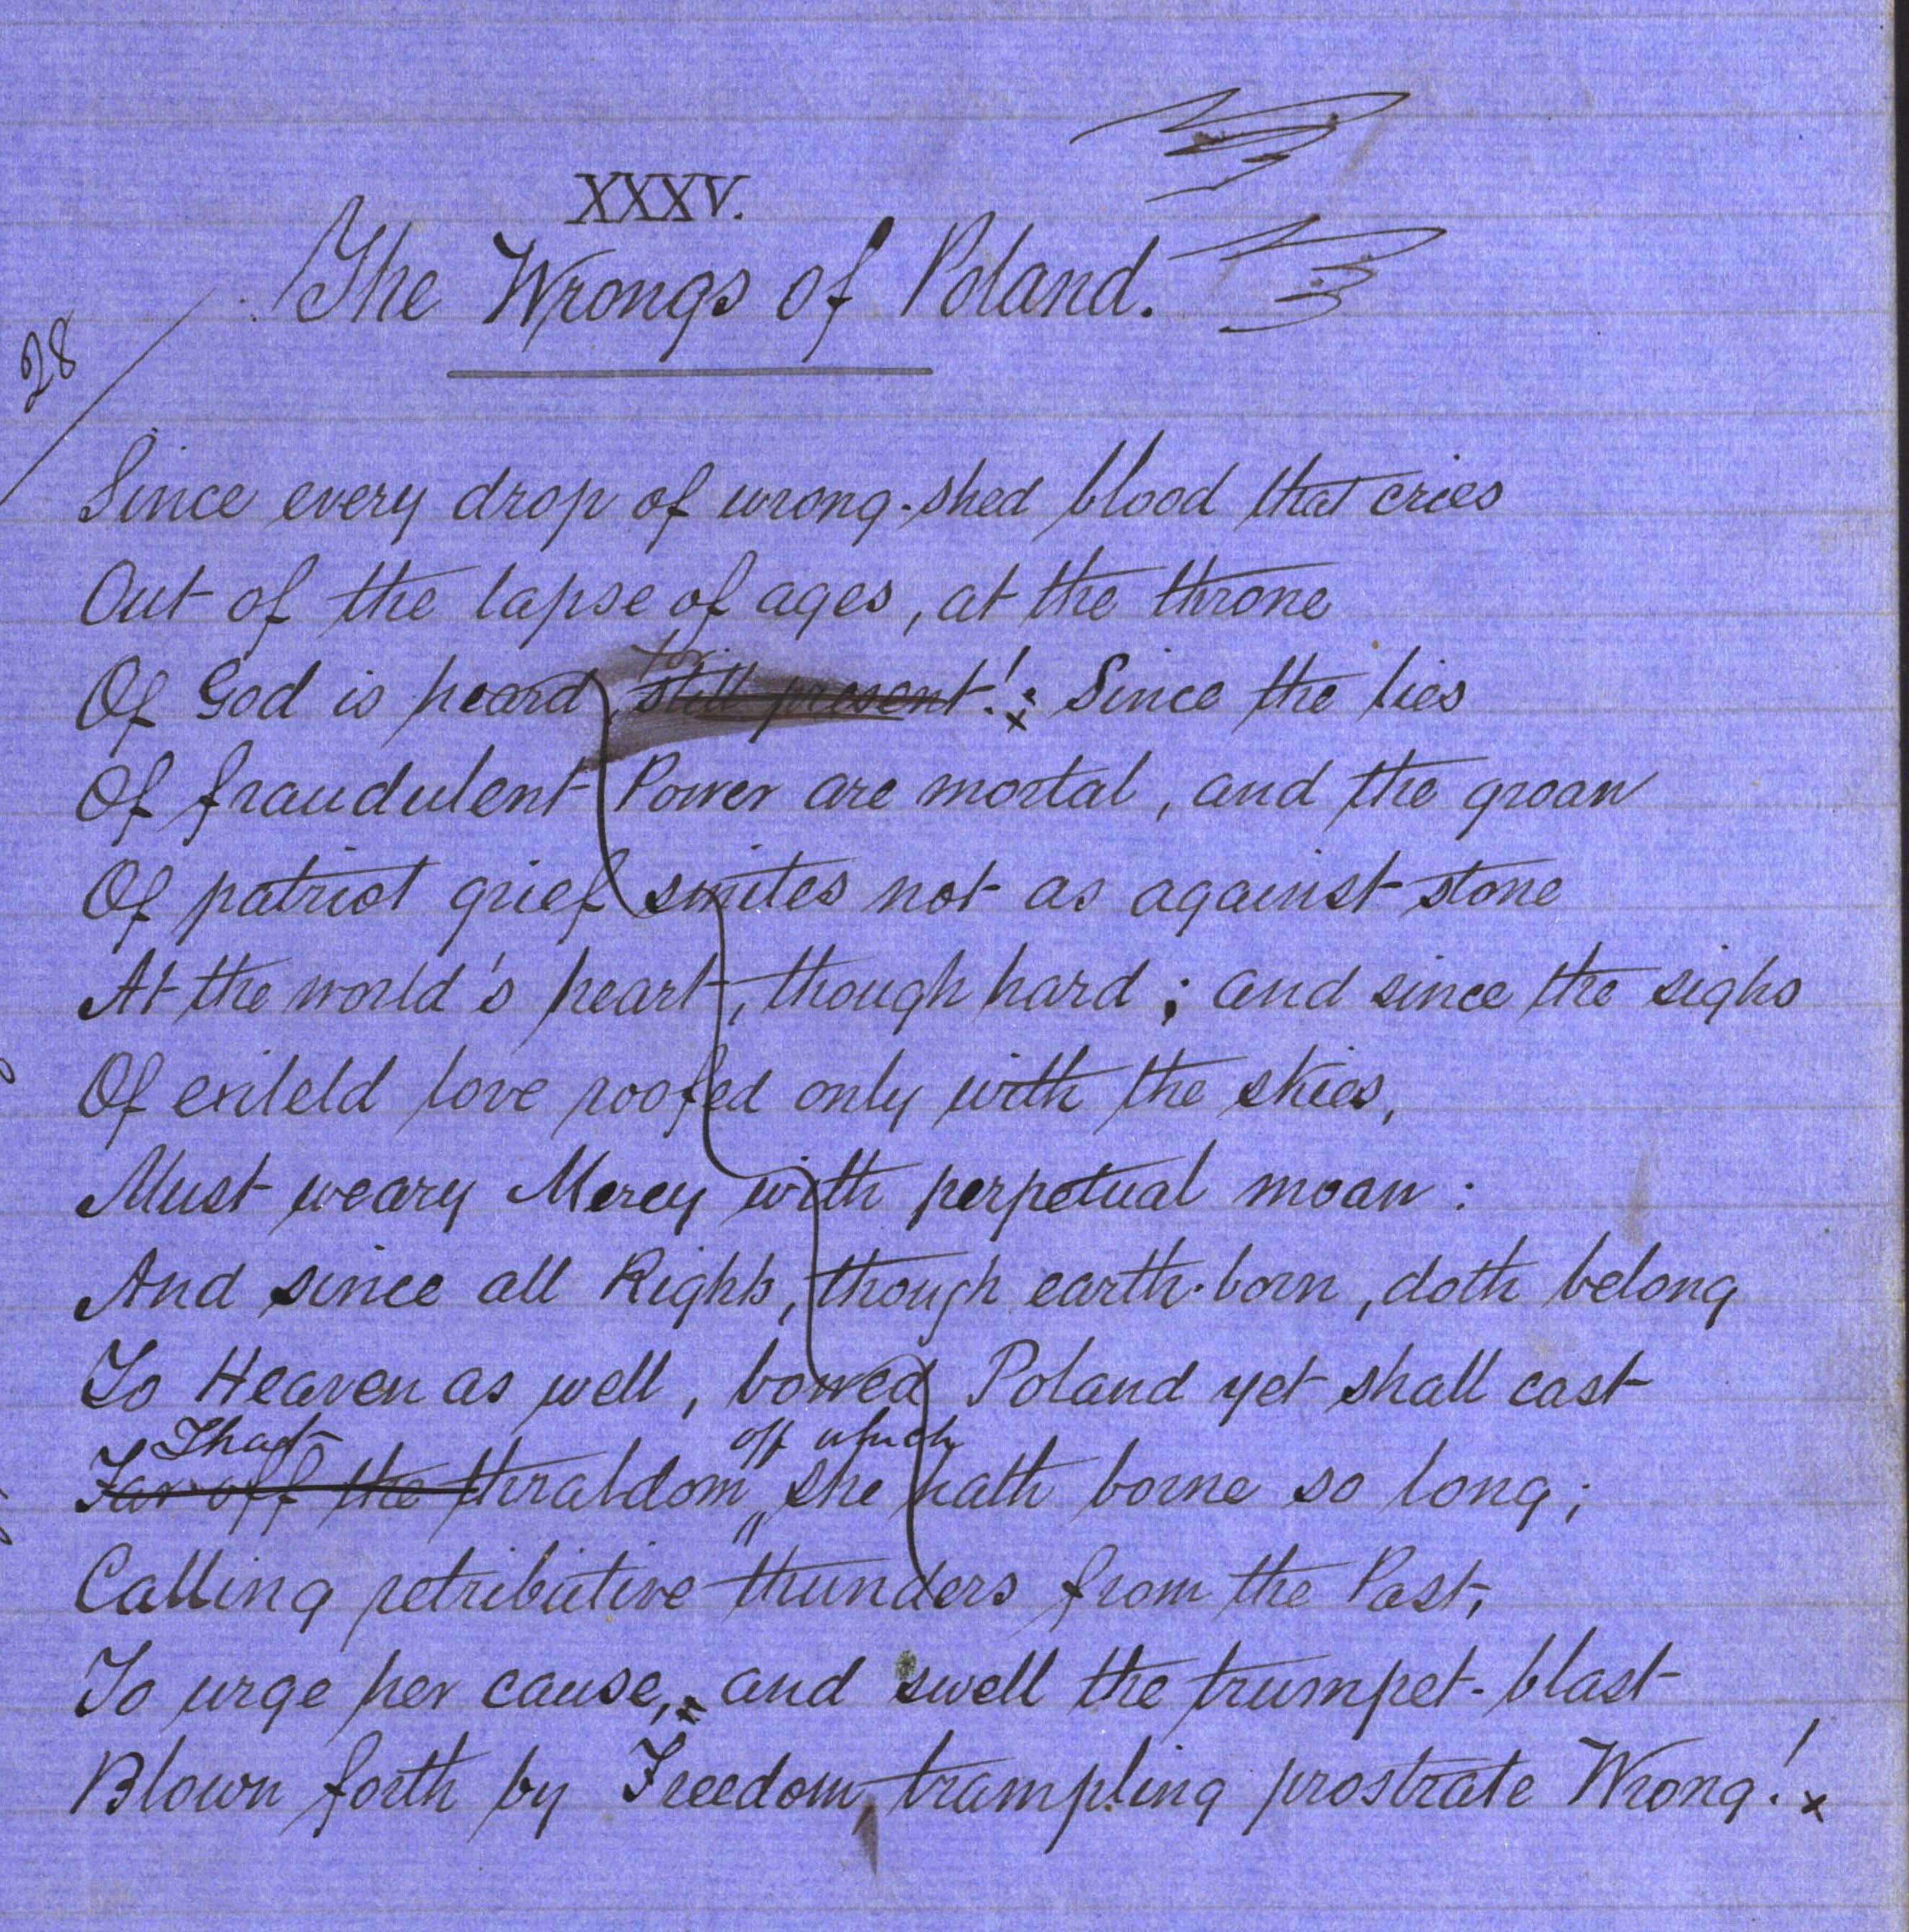 XXXV.
The Wrongs of Poland.
28
Since every drop of wrong-shed blood that cries
Out of the lapse of ages, at the throne
Of God is heard, still present!; Since the lies
Of fraudulent Power are mortal, and the groan
Of patriot grief smites not as against stone
At the world's heart, though hard; and since the sighs
Of exileld love roofed only with the skies,
Must weary Mercy with perpetual moan:
And since all Right, though earth-born, doth belong
To Heaven as well, bowed Poland yet shall cast
That off which
Far off the thraldom she hath borne so long;
Calling retributive thunders from the Past,
To urge her cause, and swell the trumpet-blast
Blown forth by Freedom, trampling prostrate Wrong!